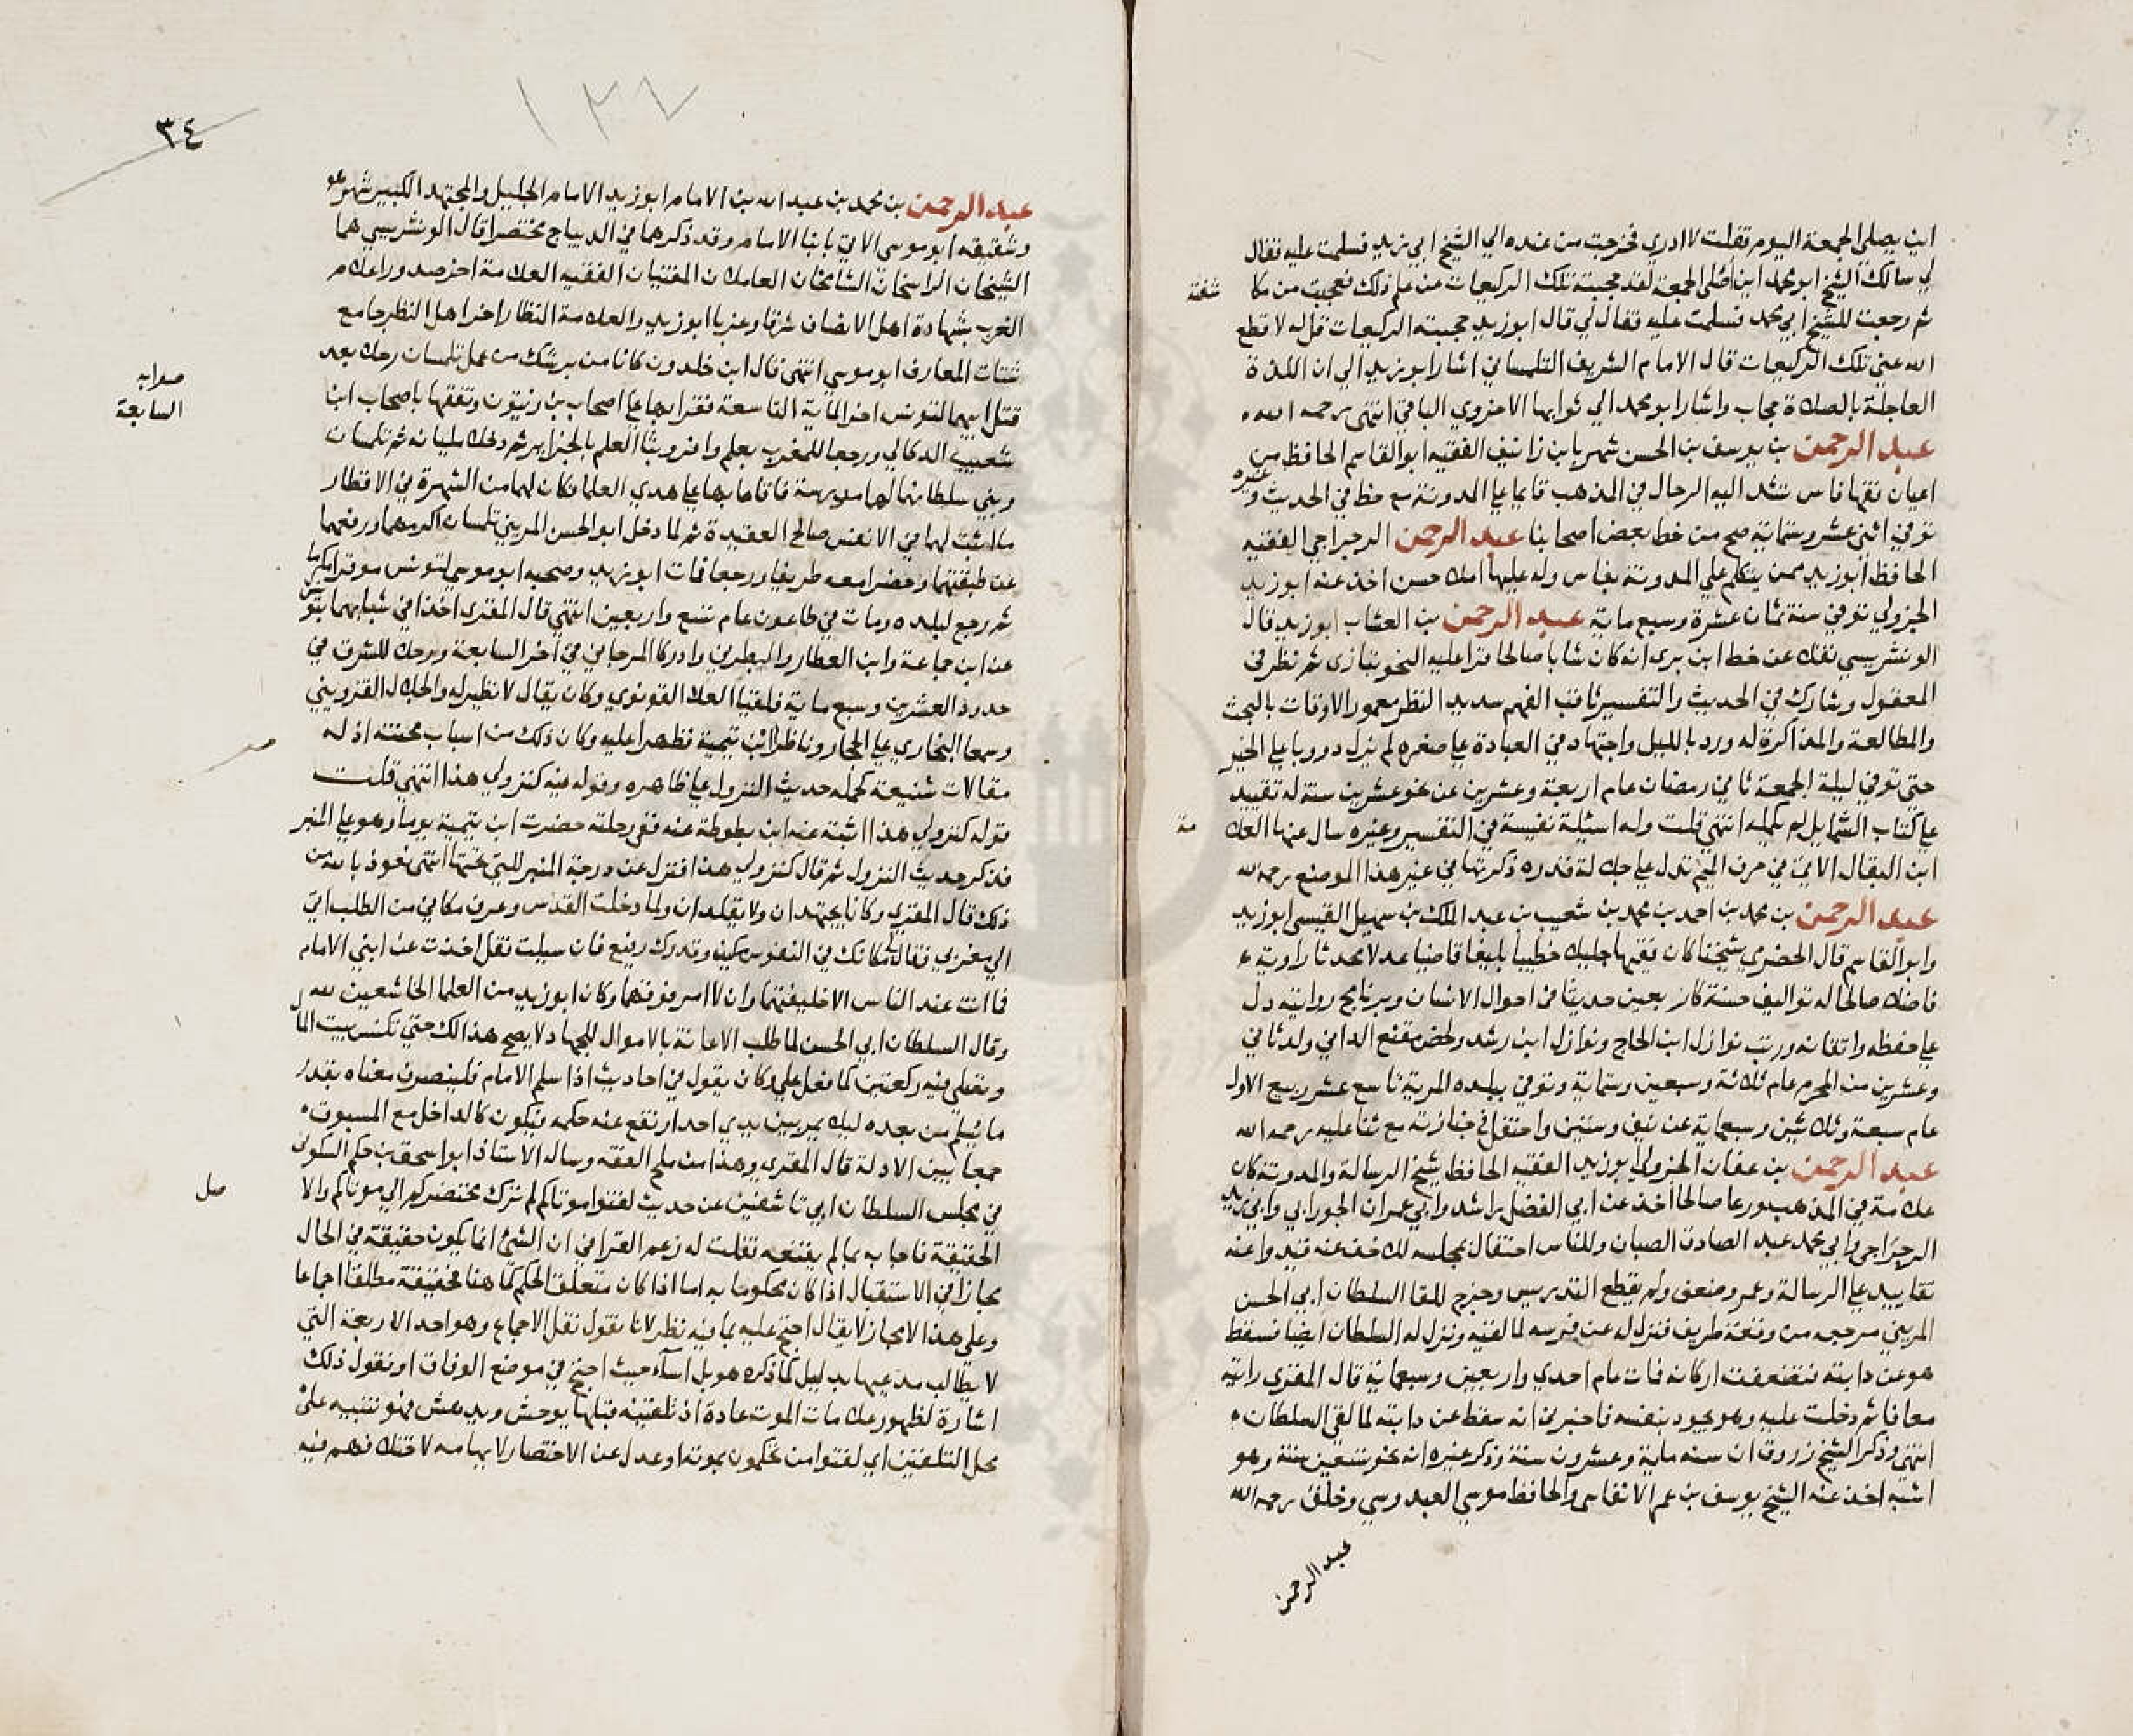 اين يصلي الجمعة اليوم فقلت لا ادري فخرجت من عنده الي الشيخ ابي زيد فسلمت عليه فقال
لي سالك الشيخ ابو محمد اين اصلي الجمعة لقد حجبته تلك الركيعات عن علم ذلك فعجبت من مكا شفته
ثم رجعت للشيخ ابي محمد فسلمت عليه فقال لي قال ابو زيد حجبته الركيعات قل له لا قطع
الله عني تلك الركيعات قال الامام الشريف التلمساني اشار ابو زيد الي ان اللذة
العاجلة بالصلاة حجاب واشار ابو محمد الي ثوابها الاخروي الباقي انتهى رحمه الله
عبد الرحمن بن يوسف بن الحسن شهر بابن زانيف الفقيه ابو القاسم الحافظ من
اعيان فقها فاس تشد اليه الرحال في المذهب قايما علي المدونة مع حظ في الحديث وغيره
توفي اثني عشر وستماية صح من خط بعض اصحابنا عبد الرحمن الرجراجي الفقيه
الحافظ ابو زيد ممن يتكلم علي المدونة بفاس وله عليها املا حسن اخذ عنه ابو زيد
الجزولي توفي سنة ثمان عشرة وسبع ماية عبد الرحمن بن العشاب ابو زيد قال
الونشريسي نقلا عن خط ابن بري انه كان شابا صالحا قرا عليه النحو بتازى ثم نظر في
المعقول وشارك في الحديث والتفسير ثاقب الفهم سديد النظر معمور الاوقات بالبحث
والمطالعة والمذاكرة له ورد بالليل واجتهاد في العبادة علي صغره لم يزل دروبا علي الخير
حتي توفي ليلة الجمعة ثاني رمضان عام اربعة وعشرين عن نحو عشرين سنة له تقييد
علي كتاب الشمايل لم يكمله انتهي قلت وله اسئلة نفيسة في التفسير وغيره سال عنها العلا مة
ابن البقال الاتي في حرف الميم تدل علي جلالة قدره ذكرتها في غير هذا الموضع رحمه الله
عبد الرحمن بن محمد بن احمد بن محمد بن شعيب بن عبد الملك بن سهيل القيسي ابو زيد
وابو القاسم قال الحضري شيخنا كان فقيها جليلا خطيبا بليغا قاضيا عدلا محدثا راوية
فاضلا صالحا له تواليف حسنة كاربعين حديثا في احوال الانسان وبرنامج روايته دل
علي حفظه واتقانه ورتب نوازل ابن الحاج ونوازل ابن رشد ولخص مقنع الداني ولد ثاني
وعشرين من المحرم عام ثلاثة وسبعين وستماية وتوفي ببلده المرية تاسع عشر ربيع الاول
عام سبعة وثلاثين وسبعماية عن نيف وستين واحتفل في جنازته مع ثنا عليه رحمه الله
عبد الرحمن بن عفان الجزولي ابو زيد الفقيه الحافظ شيخ الرسالة والمدونة كان
علامة في المذهب ورعا صالحا اخذ عن ابي الفضل راشد وابي عمران الجورابي وابي زيد
الرجراجي وابي محمد عبد الصادق الصبان وللناس احتفال بمجلسه للاخذ عنه قيدوا عنه
تقاييد علي الرسالة وعمر وضعف ولم يقطع التدريس وخرج للقا السلطان ابي الحسن
المريني مرجعه من وقعة طريف فنزل له عن فرسه لما لقيه ونزل له السلطان ايضا فسقط
هو عن دابته فتضعضعت اركانه فات عام احدي واربعين وسبعماية قال المقري راتيه
معافا ثم دخلت عليه وهو يجود بنفسه فاخبرني انه سقط عن دابته لما لقي السلطان
انتهي وذكر الشيخ زروق ان سنه ماية وعشرون سنة وذكر غيره انه نحو تسعين سنة وهو
اشبه اخذ عنه الشيخ يوسف بن عمر الانفاسي والحافظ موسي العبدوسي وخلق رحمه الله
عبد الرحمن
١٣٤
٣٤
عبد الرحمن بن محمد بن عبد الله بن الامام ابو زيد الامام الجليل والمجتهد الكبير شهر هو
وشقيقه ابو موسي الاتي بابنا الامام وقد ذكرهما في الديباج مختصرا قال الونشريسي هما
الشيخان الراسخان الشامخان العاملان المفتيان الفقيه العلامة اخر صدور اعلام
الغرب بشهادة اهل الانصاف شرقا وغربا ابو زيد والعلامة النظار اخر اهل النظر جامع
شتات المعارف ابو موسي انتهي قال ابن خلدون كانا من برشك من عمل تلمسان رحلا بعد
قتل ابيهما لتونس اخر الماية التاسعة فقرا بها علي اصحاب بن زيتون وتفقها باصحاب ابن
صوابه
السابعة
شعيب الدكالي ورجعا للمغرب بعلم وافر وبثا العلم بالجزاير ثم دخلا مليانه ثم تلمسان
وبني سلطانها لهما مدرسة فاقاما بها علي هدي العلما فكان لهما من الشهرة في الاقطار
ما اثبت لهما في الانفس صالح العقيدة ثم لما دخل ابو الحسن المريني تلمسان اكرمهما ورفعهما
عن طبقتهما وحضرا معه طريفا ورجعا فات ابو زيد وصحبه ابو موسي لتونس موقرا مكرما
ثم رجع لبلده ومات في طاعون عام تسع واربعين انتهي قال المقري اخذا في شبابهما بتونس
عن ابن جماعة وابن العطار والبطرني وادركا المرجاني في اخر السابعة ورحلا للشرق في
حدود العشرين وسبع ماية فلقيا العلا القونوي وكان يقال لا نظير له والجلال القزويني
وسمعا البخاري علي الحجار وناظرا ابن تيمية فظهرا عليه وكان ذلك من اسباب محنته اذ له
مقالات شنيعة كحمله حديث النزول علي ظاهره وقوله فيه كنزولي هذا انتهي قلت
قوله كنزولي هذا اثبته عنه ابن بطوطة عنه ففي رحلته حضرت ابن تيمية يوما وهو علي المنبر
فذكر حديث النزول ثم قال كنزولي هذا فنزل عن درجة المنبر للتي تحتها انتهى نعوذ بالله من
ذلك قال المقري وكانا يجتهدان ولا يقلدان ولما دخلت القدس وعرف مكاني من الطلب اتي
الي مغربي فقال لي مكانك في النفوس مكين وقدرك رفيع فان سيلت فقل اخذت عن ابني الامام
فاانت عند الناس الا خليفتهما وان لا امر فوقهما وكان ابو زيد من العلما الخاشعين لله
وقال السلطان ابي الحسن لما طلب الاعانة بالاموال للجهاد لا يصح هذا لك حتي تكنس بيت المال
وتصلي فيه ركعتين كما فعل علي وكان يقول في احاديث اذا سلم الامام فلينصرف معناه بقدر
ما يسلم من بعده ليلا يمر بين يدي احد ارتفع عنه حكمه فيكون كالداخل مع المسبوق
جمعا بين الادلة قال المقري وهذا من ملح الفقه وساله الاستاذ ابو اسحق بن حكم السكوني
في مجلس السلطان ابي تاشفين عن حديث لقنوا موتاكم لم ترك محتضركم الي موتاكم والا صل
الحقيقة فاجابه بما لم يقنعه فقلت له زعم القرافي ان الشئ انما يكون حقيقة في الحال
مجازا في الاستقبال اذا كان محكوما به اما اذا كان متعلق الحكم كما هنا فحقيقة مطلقا اجماعا
وعلي هذا لا مجاز لا يقال احتج عليه بما فيه نظر لانا نقول نقل الاجماع وهو احد الاربعة التي
لا يطالب مدعيها بدليل كما ذكره هو بل اساء حيث احتج في موضع الوفاق او نقول ذلك
اشارة لظهور علامات الموت عادة اذ تلقينه قبلها يوحش ويدهش فهو تنبيه علي
محل التلقين اي لقنوا من تحكمون بموته او عدل عن الاختصار لابهامه لاختلافهم فيه